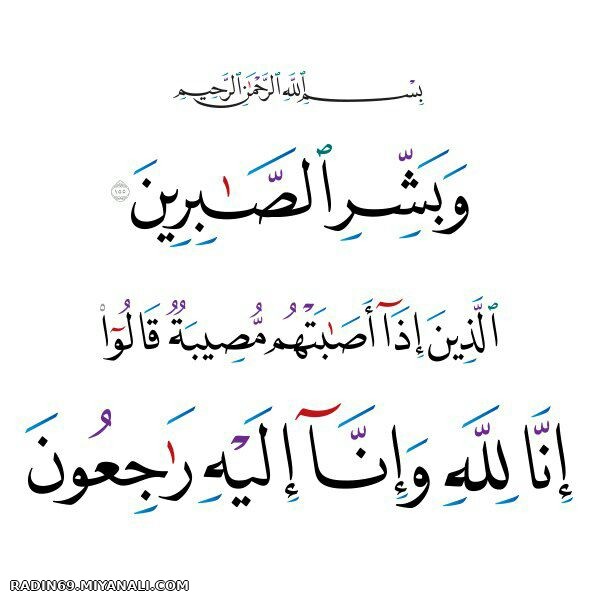 بِسْمِ ٱللَّهِ ٱلرَّحْمَٰنِ ٱلرَّحِيمِ
وَبَشِّرِ ٱلصَّـٰبِرِينَ ١٥٥
ٱلَّذِينَ إِذَآ أَصَـٰبَتْهُم مُّصِيبَةٌ قَالُوٓا۟
إِنَّا لِلَّهِ وَإِنَّآ إِلَيْهِ رَٰجِعُونَ
RADIN69.MIYANALI.COM